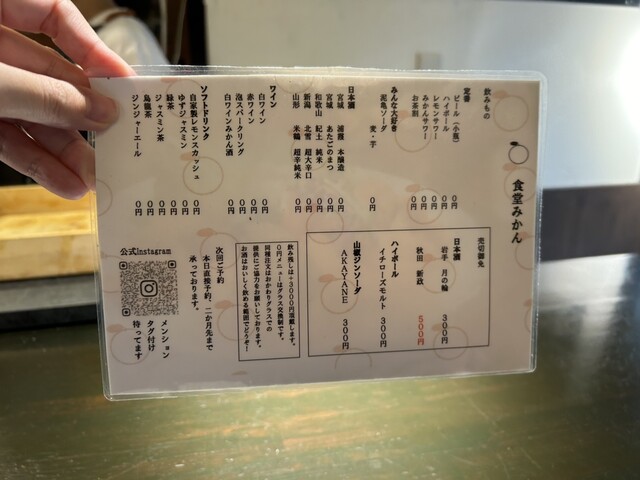 食堂みかん
飲みもの
定番
ビール（小瓶） 0円
ハイボール 0円
レモンサワー 0円
みかんサワー 0円
お茶割 0円
みんな大好き
泥亀ソーダ 麦・芋 0円
日本酒
宮城 浦霞 本醸造 0円
宮城 あたごのまつ 0円
和歌山 紀土 純米 0円
新潟 北雪 超大辛口 0円
山形 米鶴 超辛純米 0円
ワイン
白ワイン 0円
赤ワイン 0円
泡スパークリング 0円
白ワインみかん酒 0円
ソフトドリンク
自家製レモンスカッシュ 0円
ゆずジャスミン 0円
緑茶 0円
ジャスミン茶 0円
烏龍茶 0円
ジンジャーエール 0円
売切御免
日本酒
岩手 月の輪 300円
秋田 新政 500円
ハイボール
イチローズモルト 300円
山椒ジンソーダ
AKAYANE 300円
飲み残しは+3000円頂戴します。
0円メニューはグラス交換制です。
同種注文はおかわりグラスでの
提供にご協力をお願いしております。
お酒はおいしく飲める範囲でどうぞ！
次回ご予約
本日直接予約、二か月先まで
承っております。
公式Instagram
メンション
タグ付け
待ってます